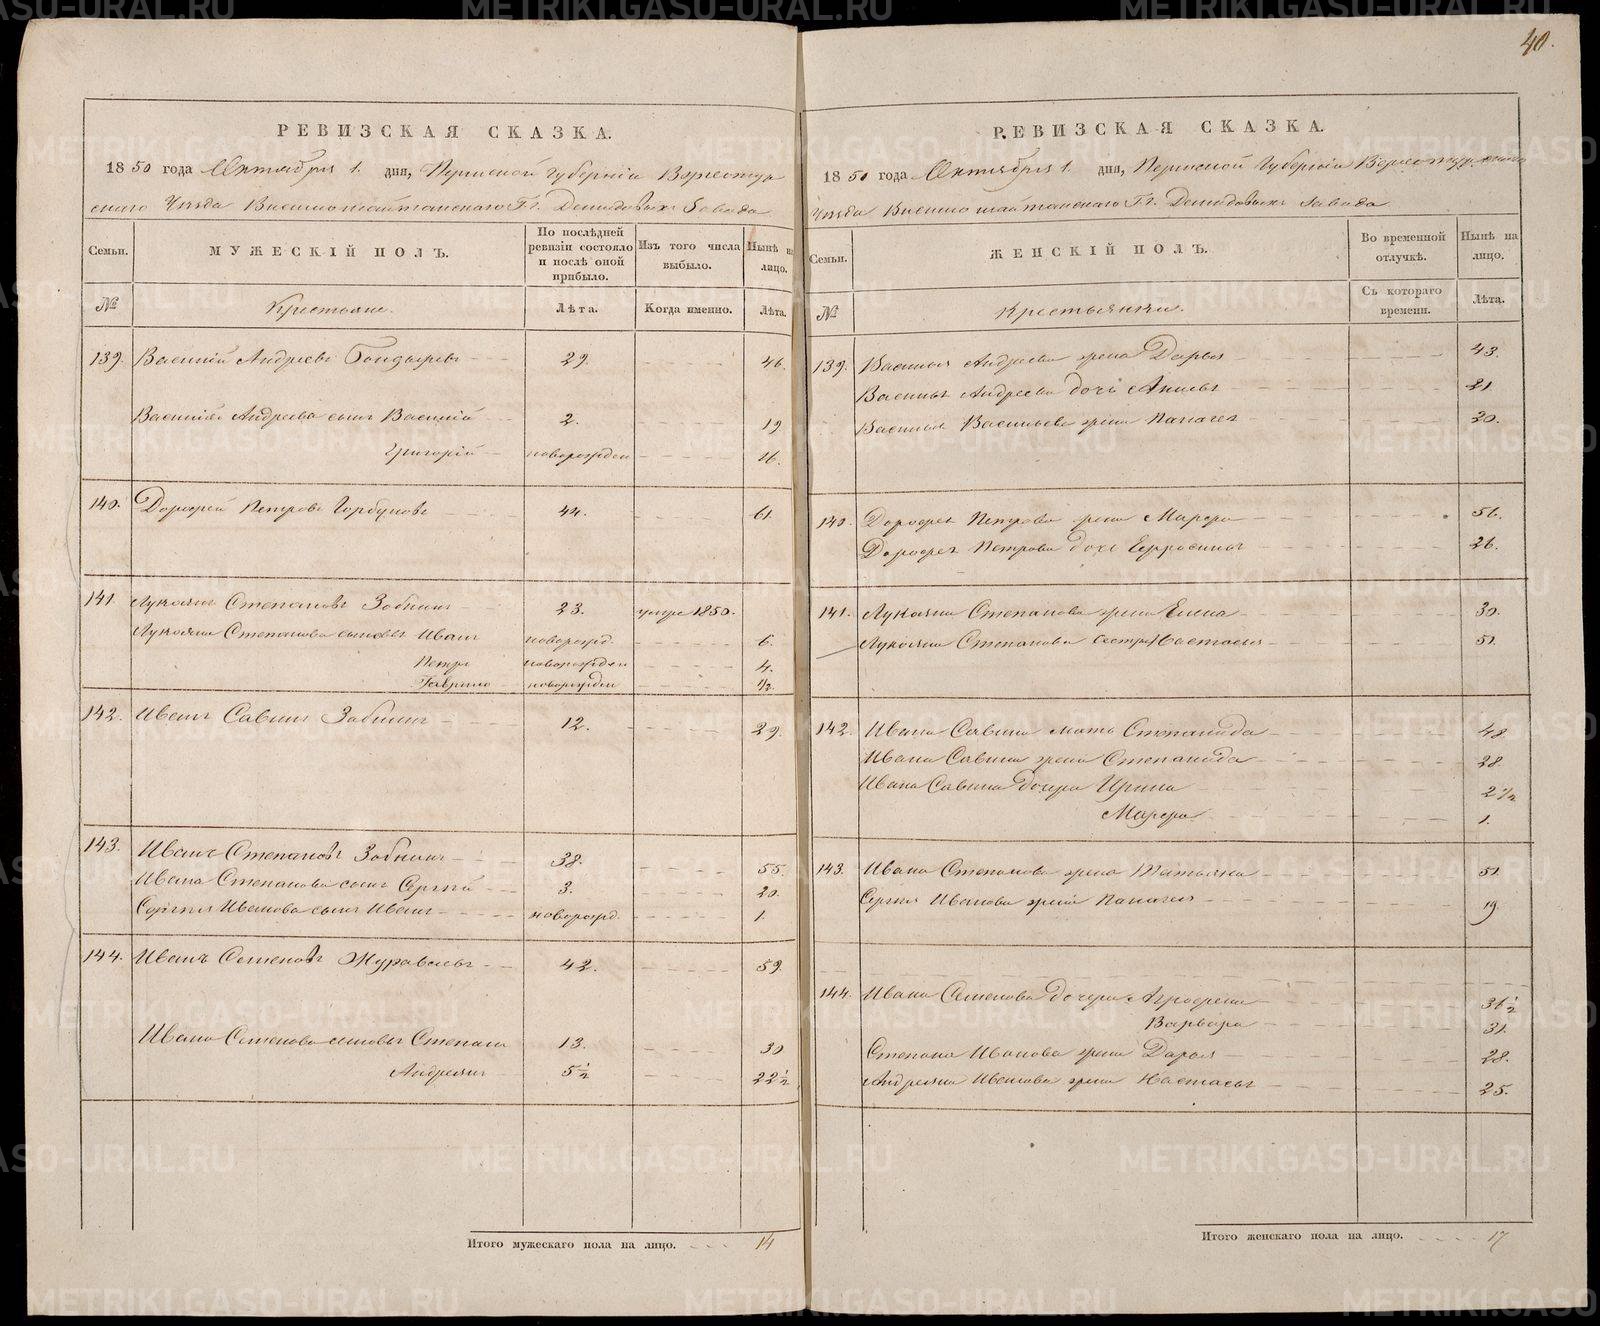 40.
РЕВИЗСКАЯ СКАЗКА.
1850 года Октября 1. дня, Пермской Губернии Верхотур
скаго Уезда Висимошайтанскаго Гг. Демидовыхъ Завода
Семьи.
МУЖЕСКІЙ ПОЛЪ.
По послѣдней ревизіи состояло и послѣ оной прибыло.
Изъ того числа выбыло.
Нынѣ на лицо.
№
Крестьяне.
Лѣта.
Когда именно.
Лѣта.
139. Василій Андреевъ Бондыревъ 29. 46.
Василія Андреева сынъ Василій 2. 19
Григорій новорожден 16.
140. Дорофей Петровъ Горбуновъ 44. 61.
141. Лукоянъ Степановъ Зобнинъ 23. умре 1850.
Лукояна Степанова сыновья Иванъ новорожд. 6.
Петръ новорожден 4.
Гаврило новорожден 1/2.
142. Иванъ Савинъ Зобнинъ 12. 29.
143. Иванъ Степановъ Зобнинъ 38. 55.
Ивана Степанова сынъ Сергѣй 3. 20.
Сергѣя Иванова сынъ Иванъ новорожд. 1.
144. Иванъ Семеновъ Журавлевъ 42. 59.
Ивана Семенова сыновья Степанъ 13. 30
Андреянъ 5 1/2 22 1/2
Итого мужескаго пола на лицо. 14
РЕВИЗСКАЯ СКАЗКА.
1850 года Октября 1. дня, Пермской Губерніи Верхотурскаго
Уезда Висимошайтанскаго Гг. Демидовыхъ Завода
Семьи.
ЖЕНСКІЙ ПОЛЪ.
Во временной отлучкѣ.
Нынѣ на лицо.
№
Крестьянки.
Съ котораго времени.
Лѣта.
139. Василья Андреева жена Дарья 43.
Василья Андреева дочь Анисья 21
Василья Васильева жена Палагея 20.
140. Дорофея Петрова жена Марфа 56.
Дорофея Петрова дочь Ефросинья 26.
141. Лукояна Степанова жена Елена 30.
Лукояна Степанова сестра Настасья 51.
142. Ивана Савина мать Степанида 48
Ивана Савина жена Степанида 28.
Ивана Савина дочери Ирина 2 1/2
Марфа 1.
143. Ивана Степанова жена Татьяна 51.
Сергѣя Иванова жена Палагея 19
144. Ивана Семенова дочери Агрофена 36 1/2
Варвара 31.
Степана Иванова жена Дарья 28.
Андреяна Иванова жена Настасья 25.
Итого женскаго пола на лицо. 17
METRIKI.GASO-URAL.RU